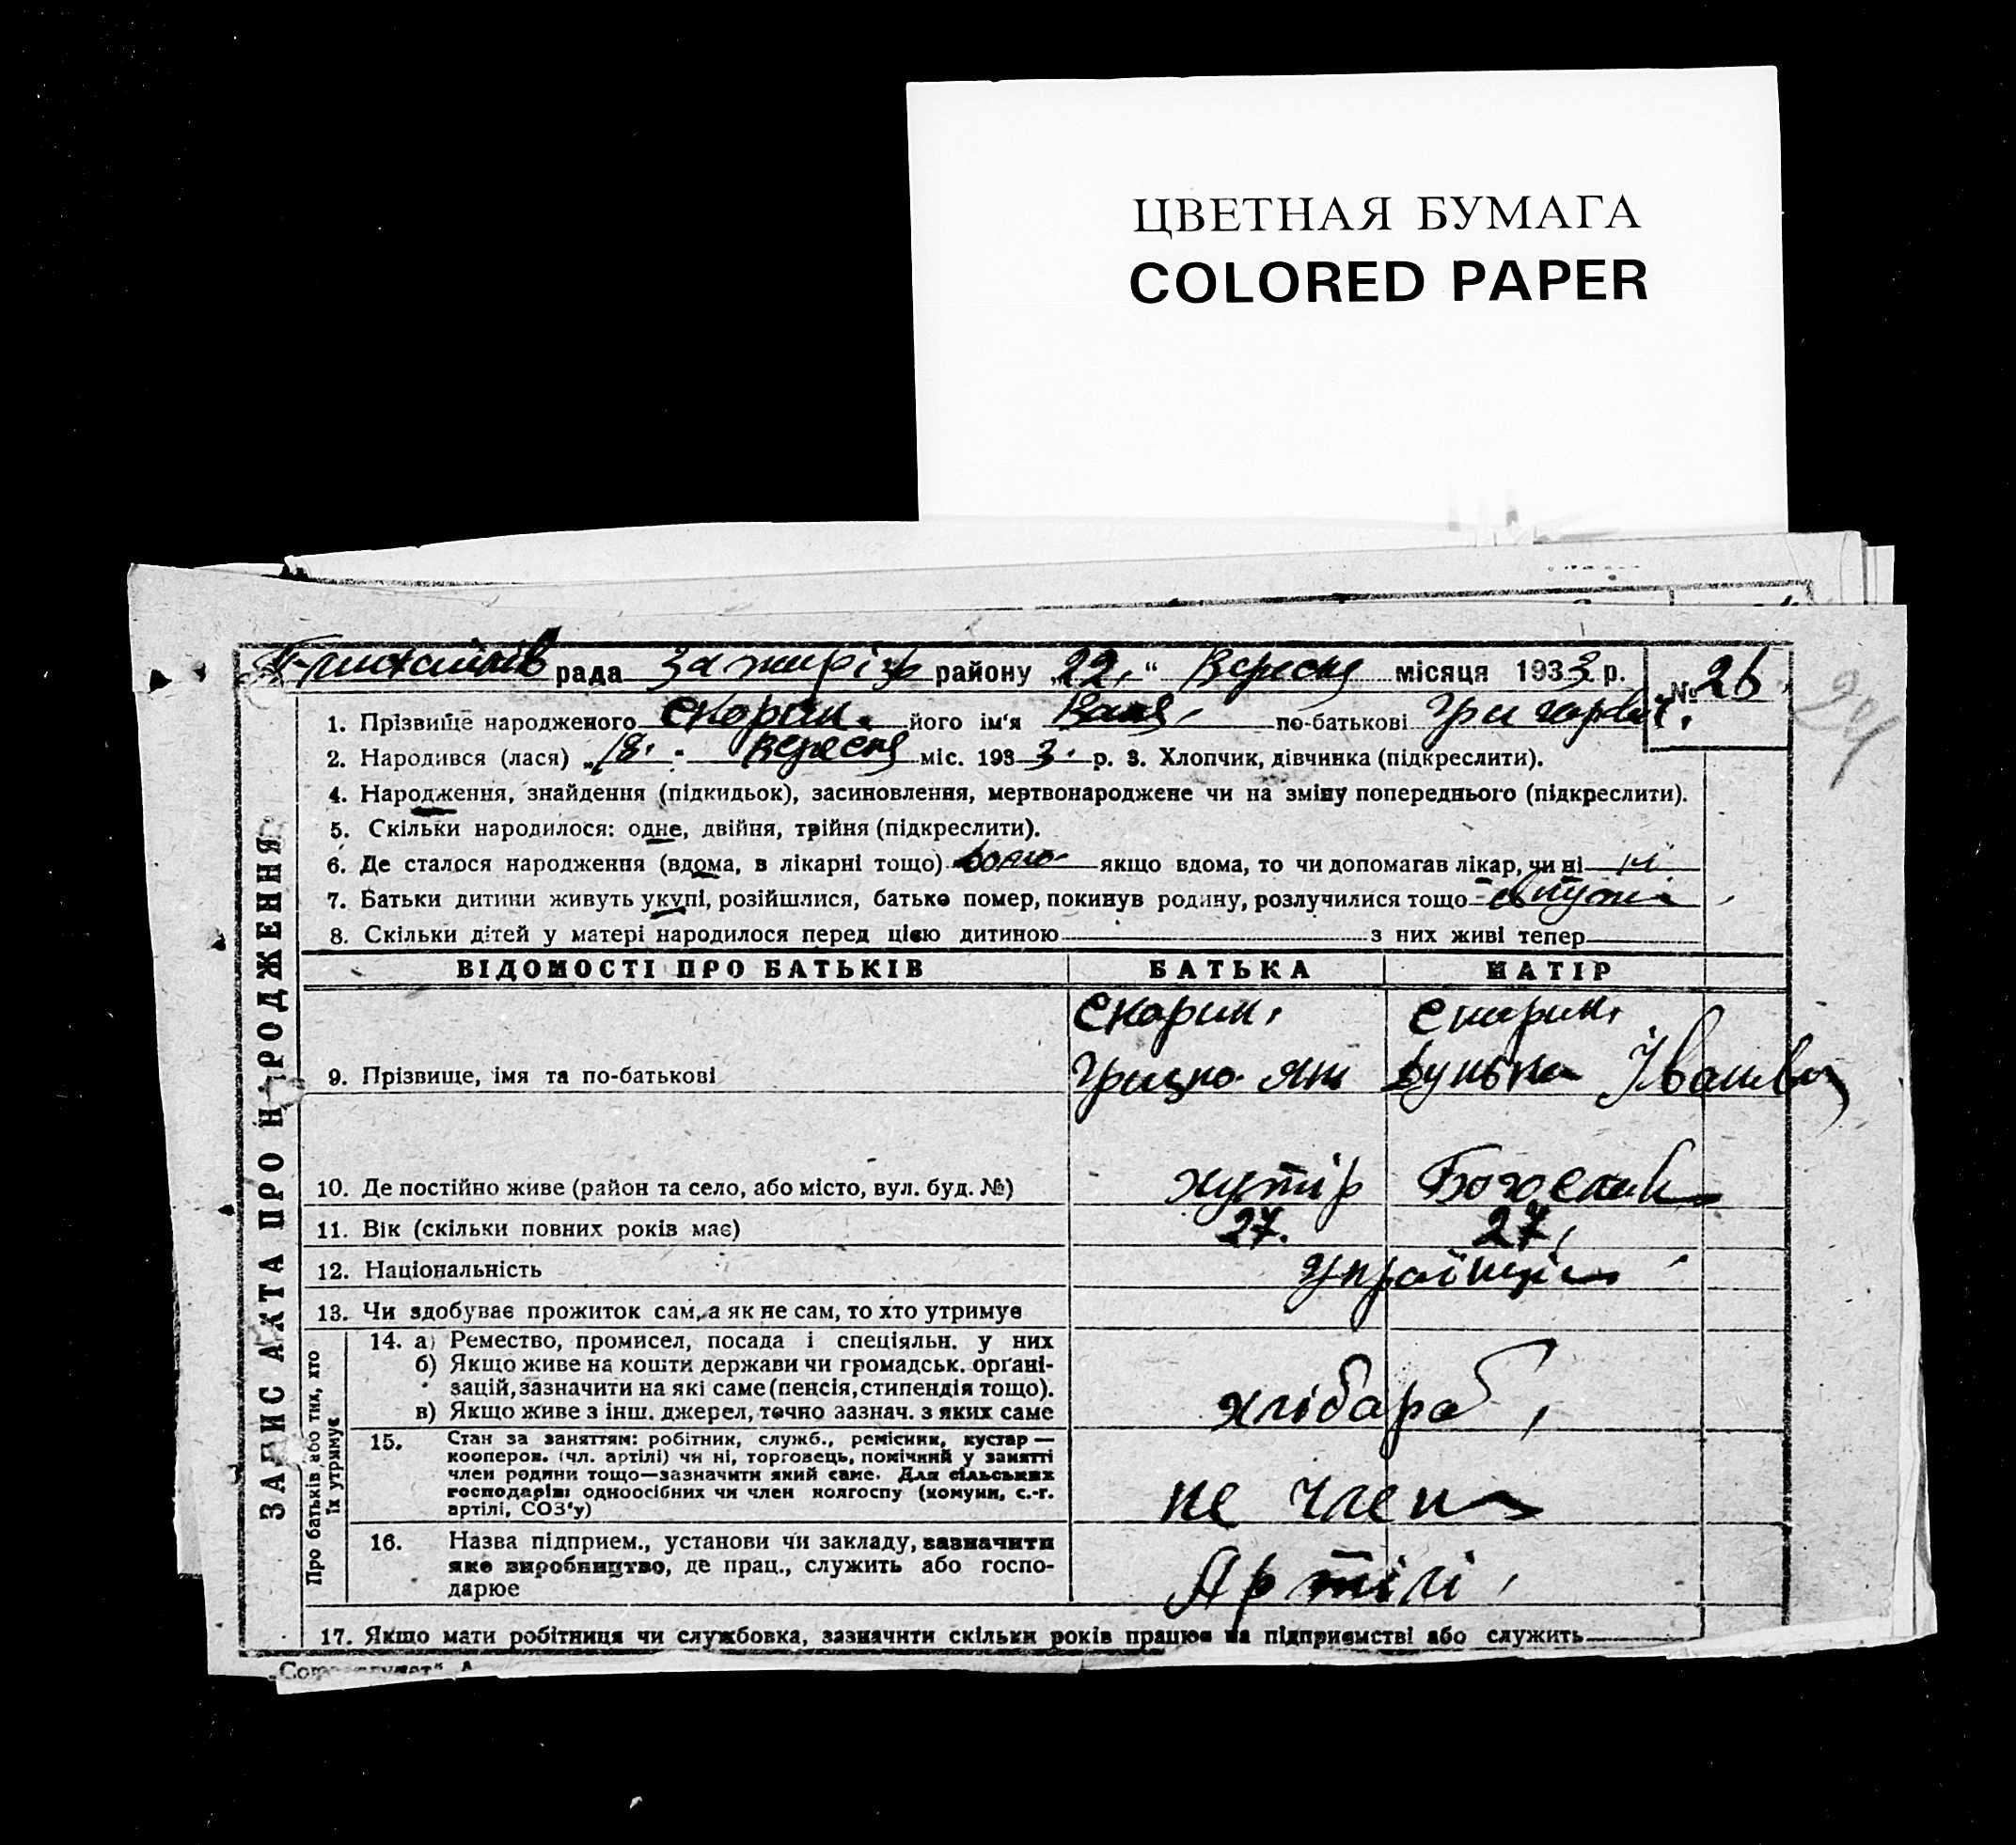 ЦВЕТНАЯ БУМАГА
COLORED PAPER
рада район у „22.“ Вересня місяця 1933 р. № 26.
24
1. Прізвище народженого Скорик. його ім'я Ваня, по-батькові Григорвич.
2. Народився (лася) „18. - Вересня міс. 1933. р. 3. Хлопчик, дівчинка (підкреслити).
4. Народження, знайдення (підкидьок), засиновлення, мертвонароджене чи на зміну попереднього (підкреслити).
5. Скільки народилося: одне, двійня, трійня (підкреслити).
6. Де сталося народження (вдома, в лікарні тощо) якщо вдома, то чи допомагав лікар, чи ні ні
7. Батьки дитини живуть укупі, розійшлися, батько помер, покинув родину, розлучилися тощо
8. Скільки дітей у матері народилося перед цією дитиною з них живі тепер
ЗАПИС АКТА ПРО НАРОДЖЕННЯ
ВІДОМОСТІ ПРО БАТЬКІВ БАТЬКА МАТІР
Скорик. Скорик.
9. Прізвище, імя та по-батькові Грицко Дунька Івановн
10. Де постійно живе (район та село, або місто, вул. буд. №) хутір
11. Вік (скільки повних років має) 27. 27,
12. Національність Українці
13. Чи здобуває прожиток сам, а як не сам, то хто утримує
Про батьків або тих, хто їх утримує
14. а) Ремество, промисел, посада і спеціяльн. у них
б) Якщо живе на кошти держави чи громадськ. орґані-
зацій, зазначити на які саме (пенсія, стипендія тощо).
в) Якщо живе з інш. джерел, точно зазнач. з яких саме хлібароб,
15. Стан за заняттям: робітник, служб., ремісник, кустар —
кооперов. (чл. артілі) чи ні, торговець, помічний у занятті
член родини тощо—зазначити який саме. Для сільських
господарів: одноосібних чи член колгоспу (комуни, с.-г.
артілі, СОЗ'у) не член
16. Назва підприєм., установи чи закладу, зазначити
яке виробництво, де прац., служить або госпо-
дарює Артілі,
17. Якщо мати робітниця чи службовка, зазначити скільки років працює на підприємстві або служить